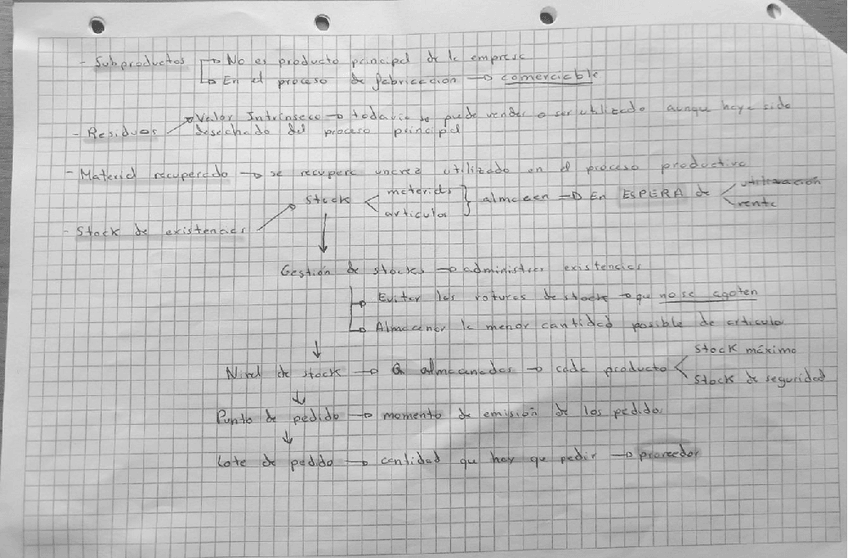 - Subproductos → No es producto principal de la empresa
→ En el proceso de fabricación → comerciable
- Residuos → Valor Intrinseco → todavía se puede vender o ser utilizado aunque haya sido
desechado del proceso principal
- Material recuperado → se recupera una vez utilizado en el proceso productivo
- Stock de existencias → Stock < materiales
articulos } almacen → En ESPERA de < utilización
venta
Gestión de stocks → administrar existencias
→ Evitar las roturas de stocks → que no se agoten
→ Almacenar la menor cantidad posible de articulo
↓
Nivel de stock → Q almacenadas → cada producto < Stock máximo
Stock de seguridad
↓
Punto de pedido → momento de emisión de los pedido
↓
Lote de pedido → cantidad que hay que pedir → proveedor